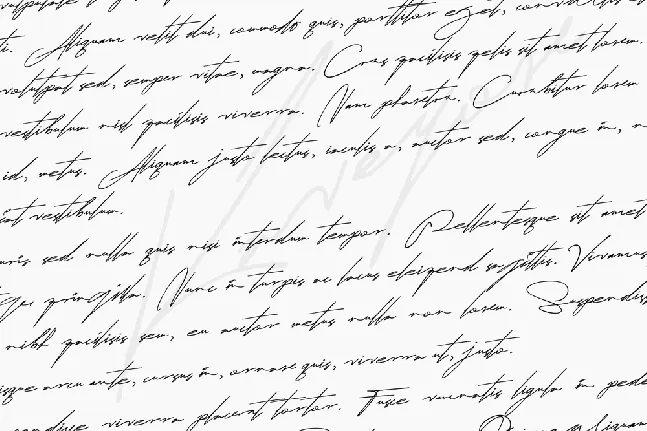 vulputate
ti. Aliquam velit dui, commodo quis, porttitor eget, convallis
volutpat sed, semper vitae, magna. Cras facilisis felis sit amet lorem.
vestibulum nisl facilisis viverra. Nam pharetra. Curabitur lorem
id, metus. Aliquam justo lectus, iaculis a, auctor sed, congue in, n
int vestibulum.
uris sed nulla quis nisi interdum tempor. Pellentesque sit amet
fringilla. Nunc in turpis ac lacus eleifend sagittis. Vivamus
nibh facilisis sem, eu auctor metus nulla non lorem. Suspendiss
isque arcu ante, cursus in, ornare quis, viverra ut, justo.
viverra placerat tortor. Fusce venenatis ligula in pede
Aliquam